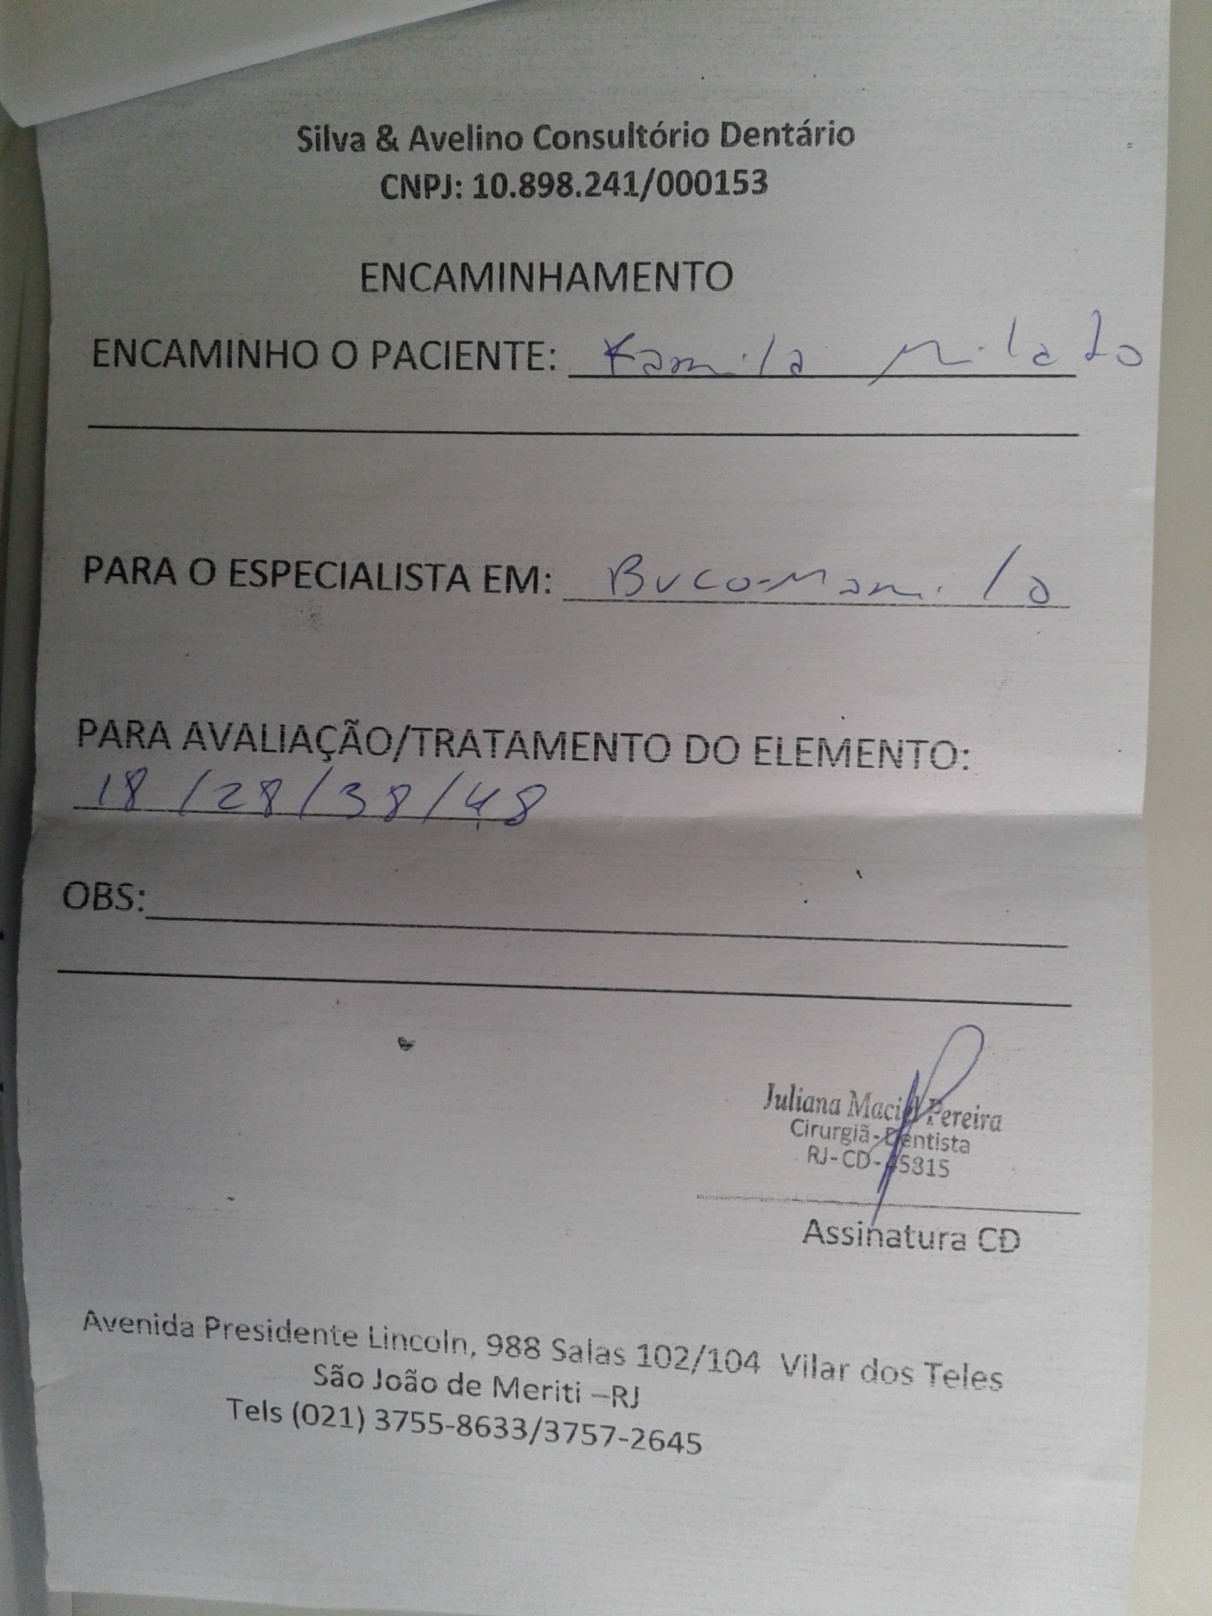 Silva & Avelino Consultório Dentário
CNPJ: 10.898.241/000153
ENCAMINHAMENTO
ENCAMINHO O PACIENTE: Kamila Milato
PARA O ESPECIALISTA EM: Buco-Maxila
PARA AVALIAÇÃO/TRATAMENTO DO ELEMENTO:
18/28/38/48
OBS:
Juliana Maciel Pereira
Cirurgiã-Dentista
RJ-CD-
Assinatura CD
Avenida Presidente Lincoln, 988 Salas 102/104 Vilar dos Teles
São João de Meriti –RJ
Tels (021) 3755-8633/3757-2645